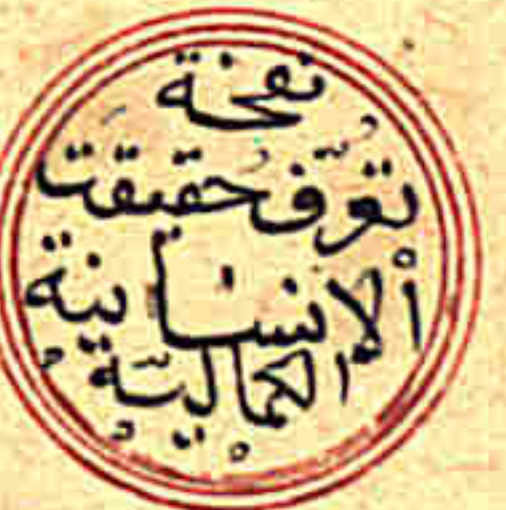 نفخة
تعرّف حقيقت
الإنسانية
الكماليّة